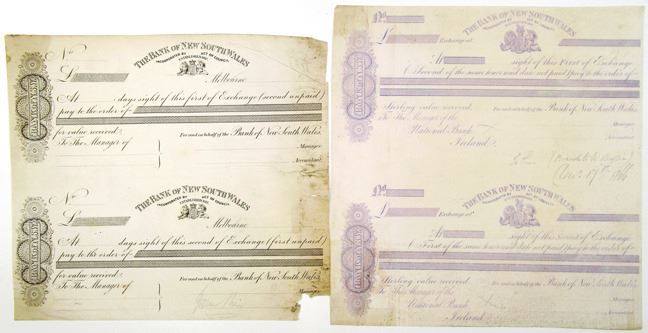 No
THE BANK OF NEW SOUTH WALES
INCORPORATED BY ACT OF COUNCIL
£
Melbourne
At days sight of this first of Exchange (second unpaid)
pay to the order of
for value received.
For and on behalf of the Bank of New South Wales.
To The Manager of
Manager.
Accountant.
No
THE BANK OF NEW SOUTH WALES
INCORPORATED BY ACT OF COUNCIL
£
Melbourne
At days sight of this second of Exchange (first unpaid)
pay to the order of
for value received.
For and on behalf of the Bank of New South Wales.
To The Manager of
No.
THE BANK OF NEW SOUTH WALES
INCORPORATED BY ACT OF COUNCIL
£
Exchange at
At sight of this First of Exchange
(Second of the same tenor and date not paid) pay to the order of
Sterling value received.
For and on behalf of the Bank of New South Wales.
To The Manager of the
National Bank
Ireland.
Manager.
Accountant.
No.
THE BANK OF NEW SOUTH WALES
INCORPORATED BY ACT OF COUNCIL
£
Exchange at
At sight of this Second of Exchange
(First of the same tenor and date not paid) pay to the order of
Sterling value received.
For and on behalf of the Bank of New South Wales.
To The Manager of the
National Bank
Ireland
Manager.
Accountant.